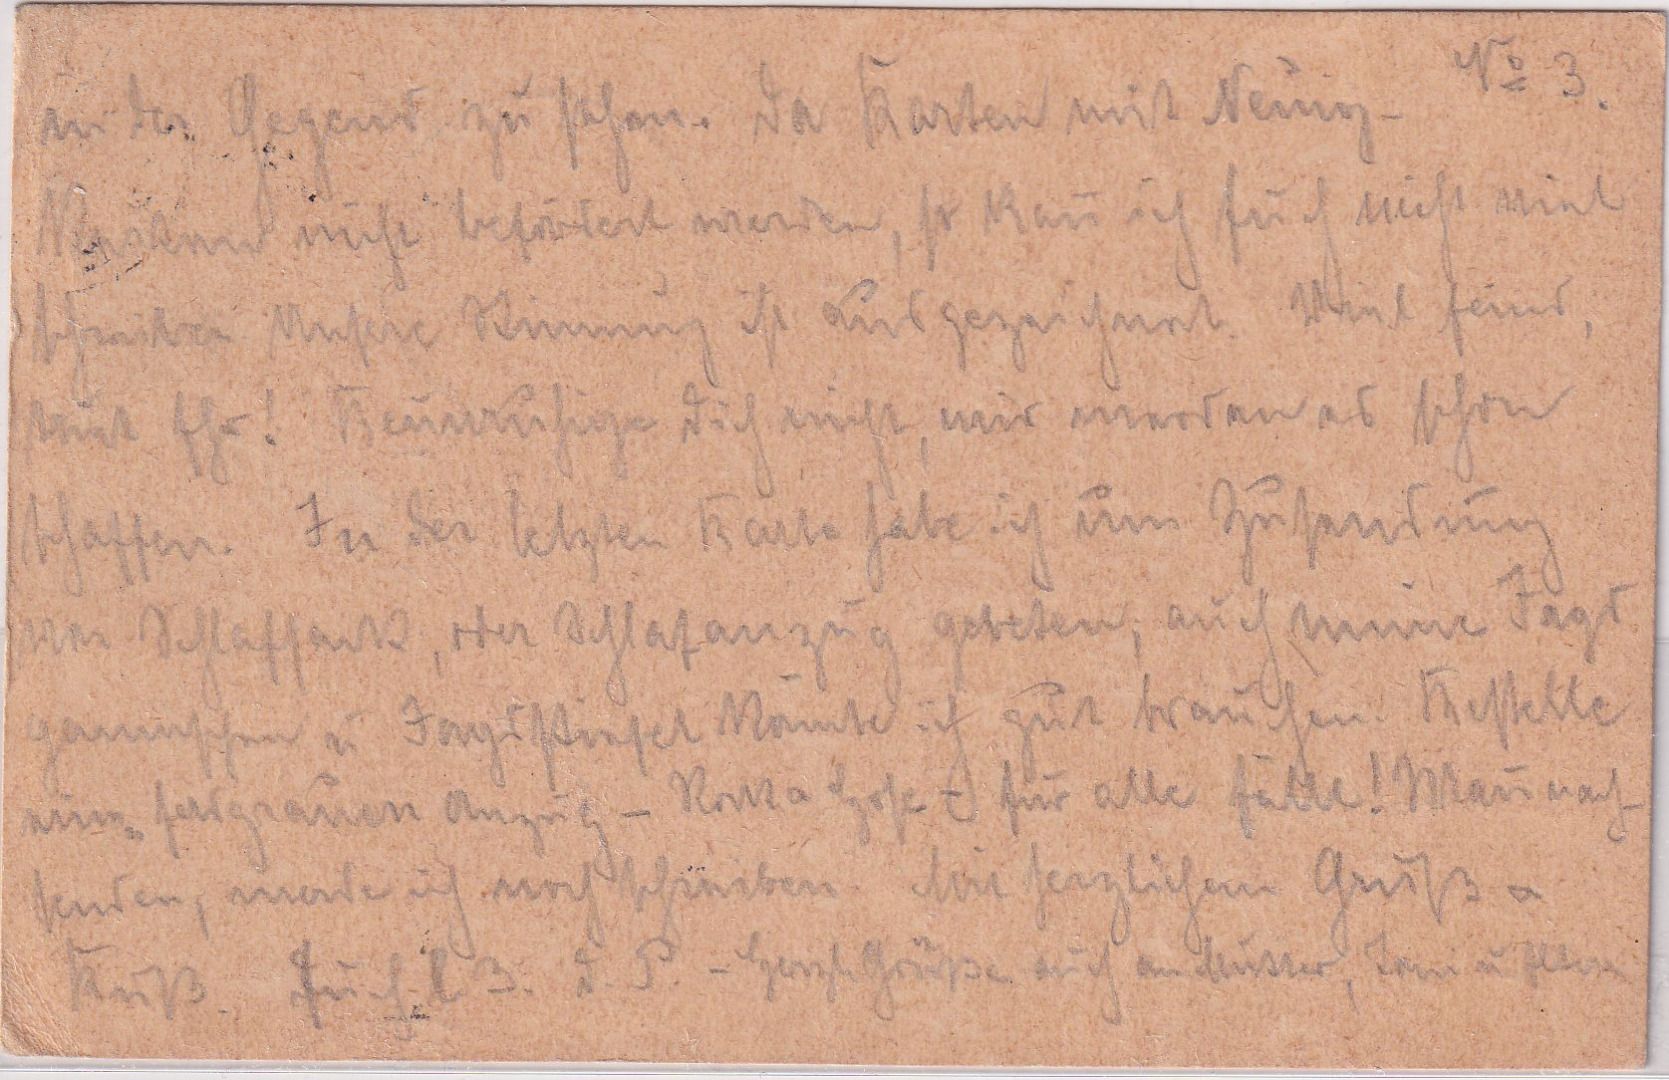 No 3.
in der Gegend zu sehen. Da Karten mit Neuig-
nicht befördert werden, so kann ich Euch nicht viel
schreiben Unsere Stimmung ist ausgezeichnet. Viel Feind,
viel Ehr! Beunruhige Dich nicht, wir werden es schon
schaffen. In der letzten Karte habe ich um Zusendung
von Schlafsack, oder Schlafanzug gebeten, auch meine Jagd
gamaschen u Jagdstiefel könnte ich gut brauchen. Bestelle
feldgrauen Anzug – Rock u Hose – für alle Fälle! Wann nach-
senden, werde ich noch schreiben. Mit herzlichem Gruß u
Kuß. Euch l B. d. P. – Herzl. Grüße auch an Mutter, u